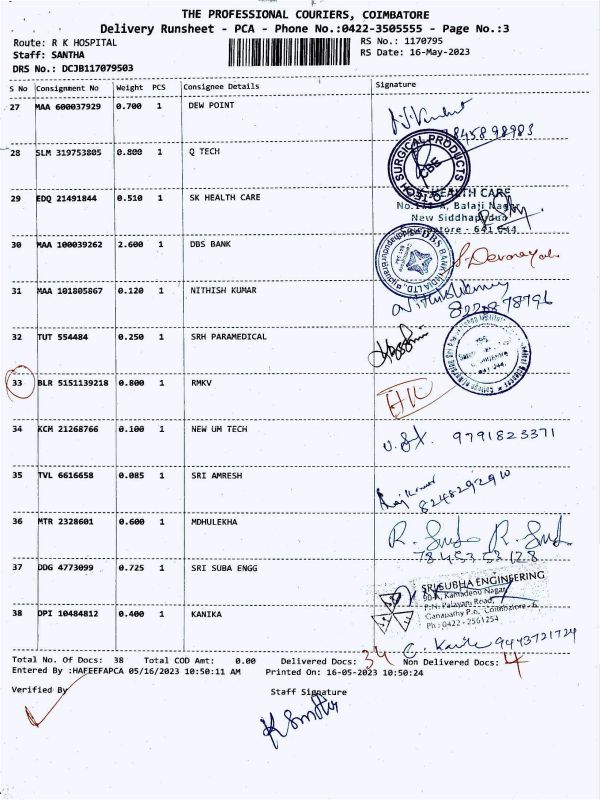 THE PROFESSIONAL COURIERS, COIMBATORE
Delivery Runsheet - PCA - Phone No.:0422-3505555 - Page No.:3
Route: R K HOSPITAL RS No.: 1170795
Staff: SANTHA RS Date: 16-May-2023
DRS No.: DCJB117079503
S No Consignment No Weight PCS Consignee Details Signature
27 MAA 600037929 0.700 1 DEW POINT
28 SLM 319753805 0.800 1 Q TECH
SURGICAL PRODUCTS
CBE
29 EDQ 21491844 0.510 1 SK HEALTH CARE
HEALTH CARE
Balaji Nagar
New Siddhapudur
30 MAA 100039262 2.600 1 DBS BANK
DBS BANK INDIA LTD.
31 MAA 101805867 0.120 1 NITHISH KUMAR
32 TUT 554484 0.250 1 SRH PARAMEDICAL
33 BLR 5151139218 0.800 1 RMKV
34 KCM 21268766 0.100 1 NEW UM TECH
9791823371
35 TVL 6616658 0.085 1 SRI AMRESH
8248292910
36 MTR 2328601 0.600 1 MDHULEKHA
37 DDG 4773099 0.725 1 SRI SUBA ENGG
SRI SUBHA ENGINEERING
90-A, Kamadenu Nagar
P.N. Palayam Road,
Ganapathy P.o, Coimbatore - 6
Ph : 0422 - 2561254
38 DPI 10484812 0.400 1 KANIKA
9443721724
Total No. Of Docs: 38 Total COD Amt: 0.00 Delivered Docs: 34 Non Delivered Docs: 4
Entered By :HAFEEFAPCA 05/16/2023 10:50:11 AM Printed On: 16-05-2023 10:50:24
Verified By Staff Signature